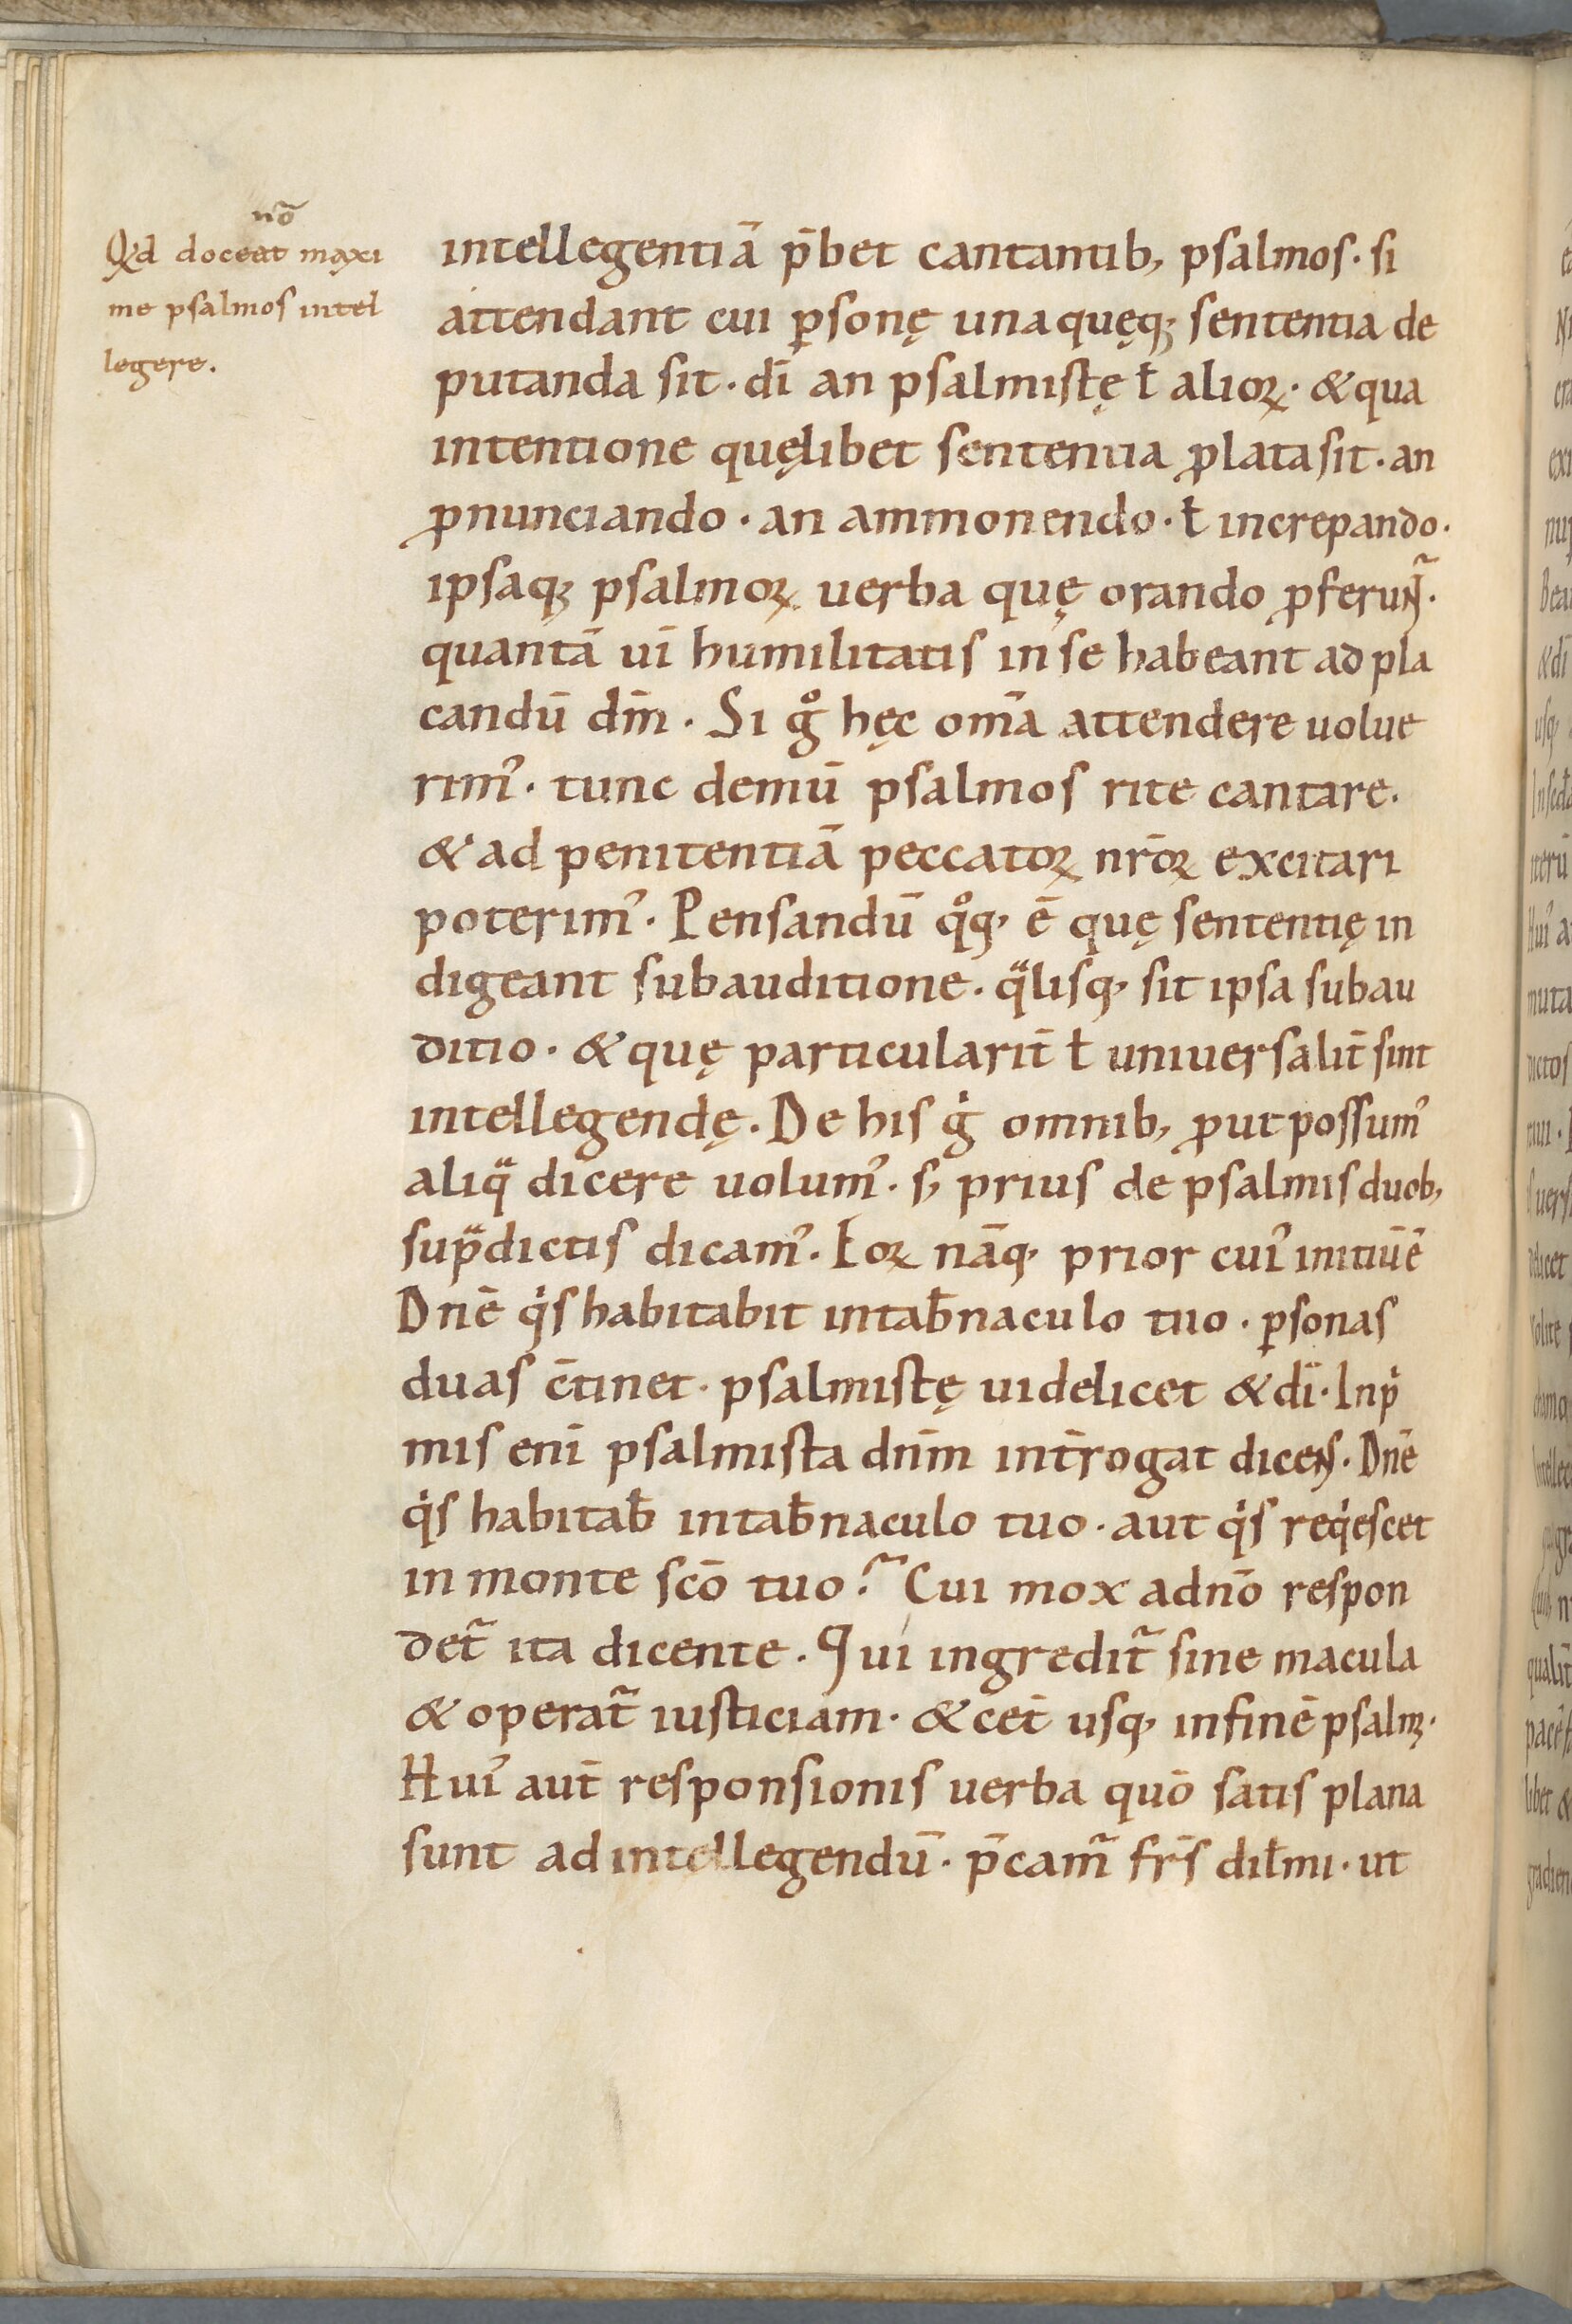 nō
Qđ doceat maxi
me psalmos intel
legere.
intellegentiā p̄bet cantantib; psalmos· si
attendant cui ꝑsonę unaquęq; sententia de
putanda sit· dī an psalmistę ł alioꝝ· & qua
intentione quęlibet sententia ꝓlata sit· an
ꝓnunciando· an ammonendo· ł increpando·
ipsaq; psalmoꝝ uerba quę orando ꝓferunt̃·
quantā uī humilitatis in se habeant ad pla
candū dm̄· Si gͦ hęc om̄a attendere uolue
rimꝰ· tunc demū psalmos rite cantare·
& ad penitentiā peccatoꝝ nr̄oꝝ excitari
poterimꝰ· Pensandū qͦq; ē quę sententię in
digeant subauditione· qͣlisq; sit ipsa subau
ditio· & quę particularit̄ ł uniuersalit̄ sint
intellegendę· De his gͥ omnib; ꝓut possumꝰ
aliqͣ dicere uolumꝰ· s; prius de psalmis duob;
supͣdictis dicamꝰ· Eoꝝ nāq; prior cuiꝰ initiū ē
Dn̄e qͥs habitabit in tab̄naculo tuo· ꝑsonas
duas c̄tinet· psalmistę uidelicet & dī· Inpͥ
mis enī psalmista dn̄m int̄rogat dicens· Dn̄e
qͥs habitab̄ in tab̄naculo tuo· aut qͥs reqͥescet
in monte sc̄o tuo? Cui mox a dn̄o respon
det̃ ita dicente· Qui ingredit̃ sine macula
& operat̃ iusticiam· & cet̄ usq; in finē psalm̄·
Huiꝰ aut̄ responsionis uerba quō satis plana
sunt ad intellegendū· p̄camꝰ fr̄s dil̄mi· ut